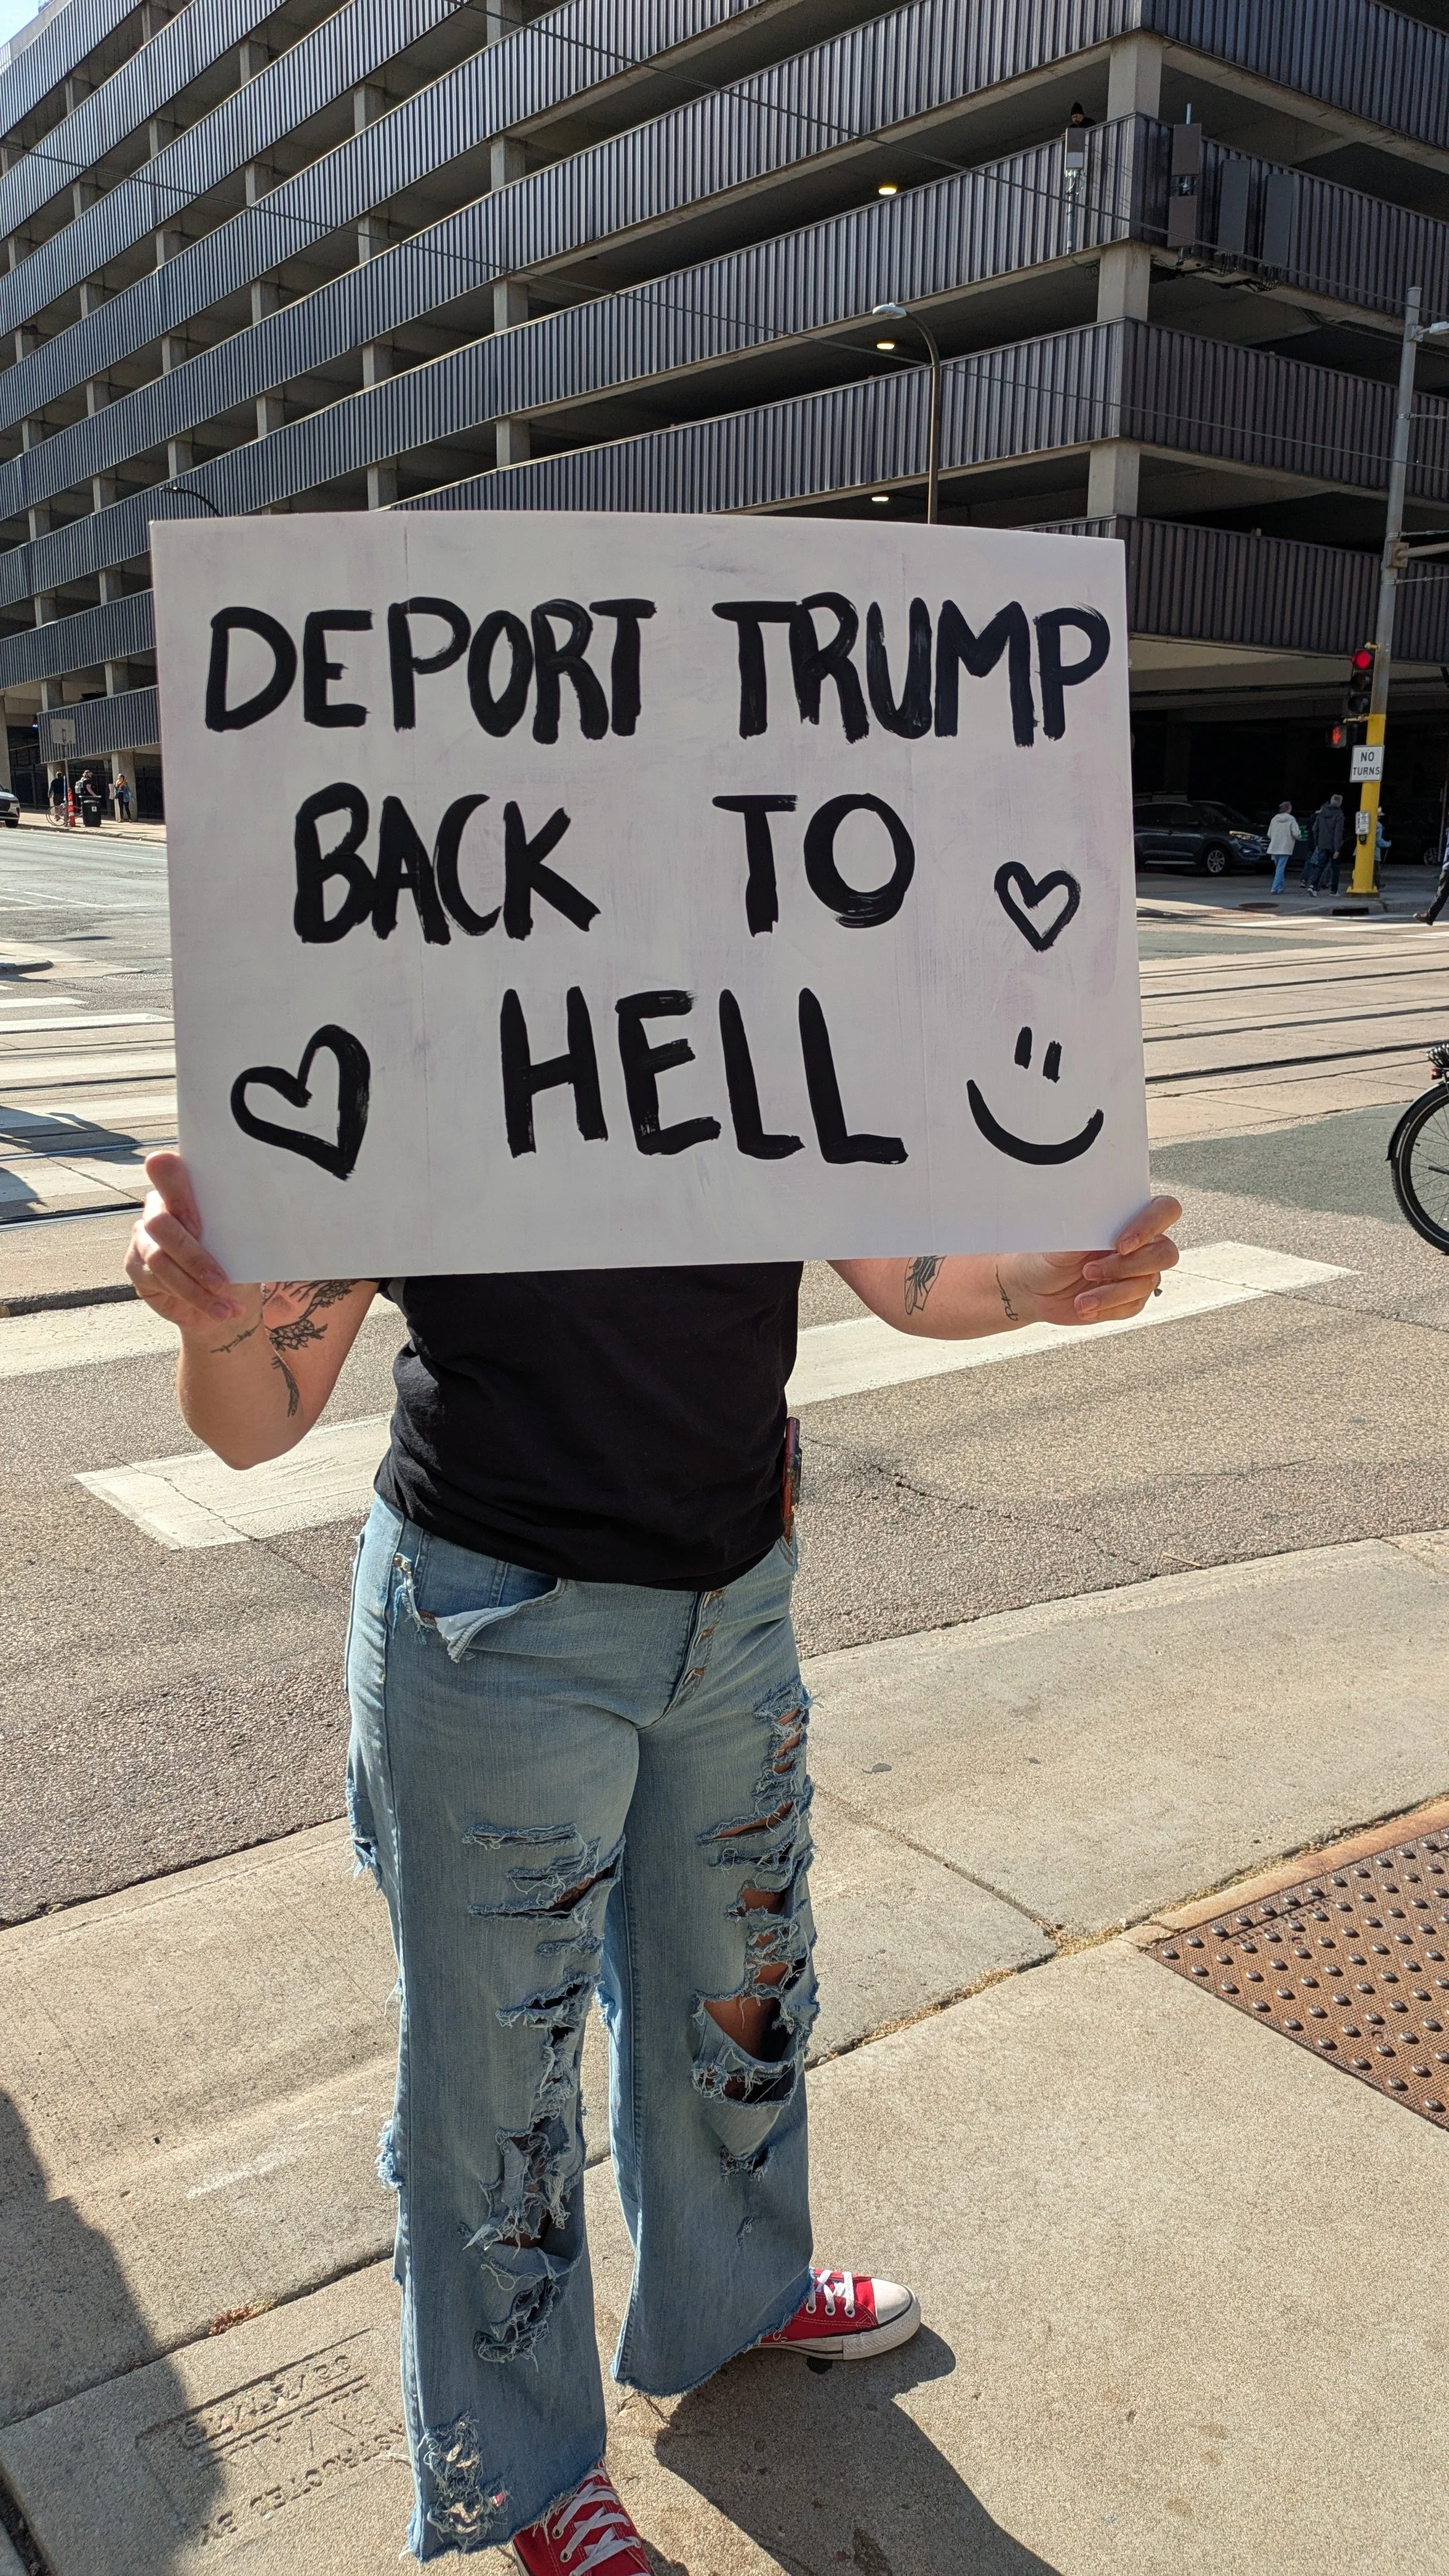 DEPORT TRUMP
BACK TO
HELL
NO
TURNS